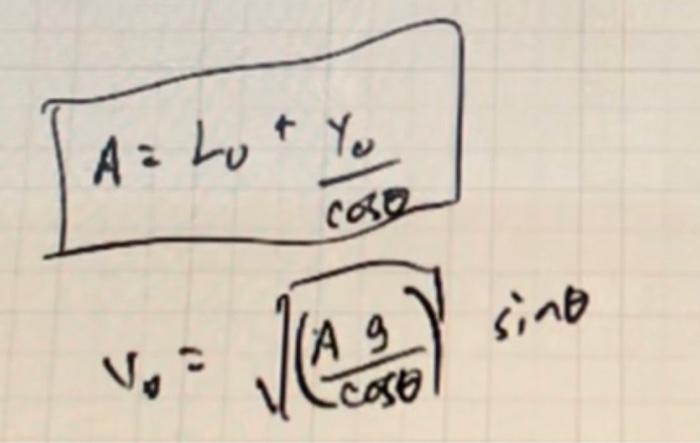 A = L₀ + Y₀/cosθ
v₀ = √(A g/cosθ) sinθ